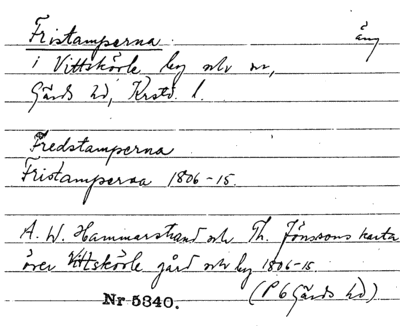 Fristamperna. äng
i Vittskövle by och sn,
Gärds hd, Krstd. l.
Fredstamperna
Fristamperna 1806-15.
A. W. Hammarstrand och Th. Jönssons karta
över Vittskövle gård och by 1806-15
Nr 5340. (P 6 Gärds hd)